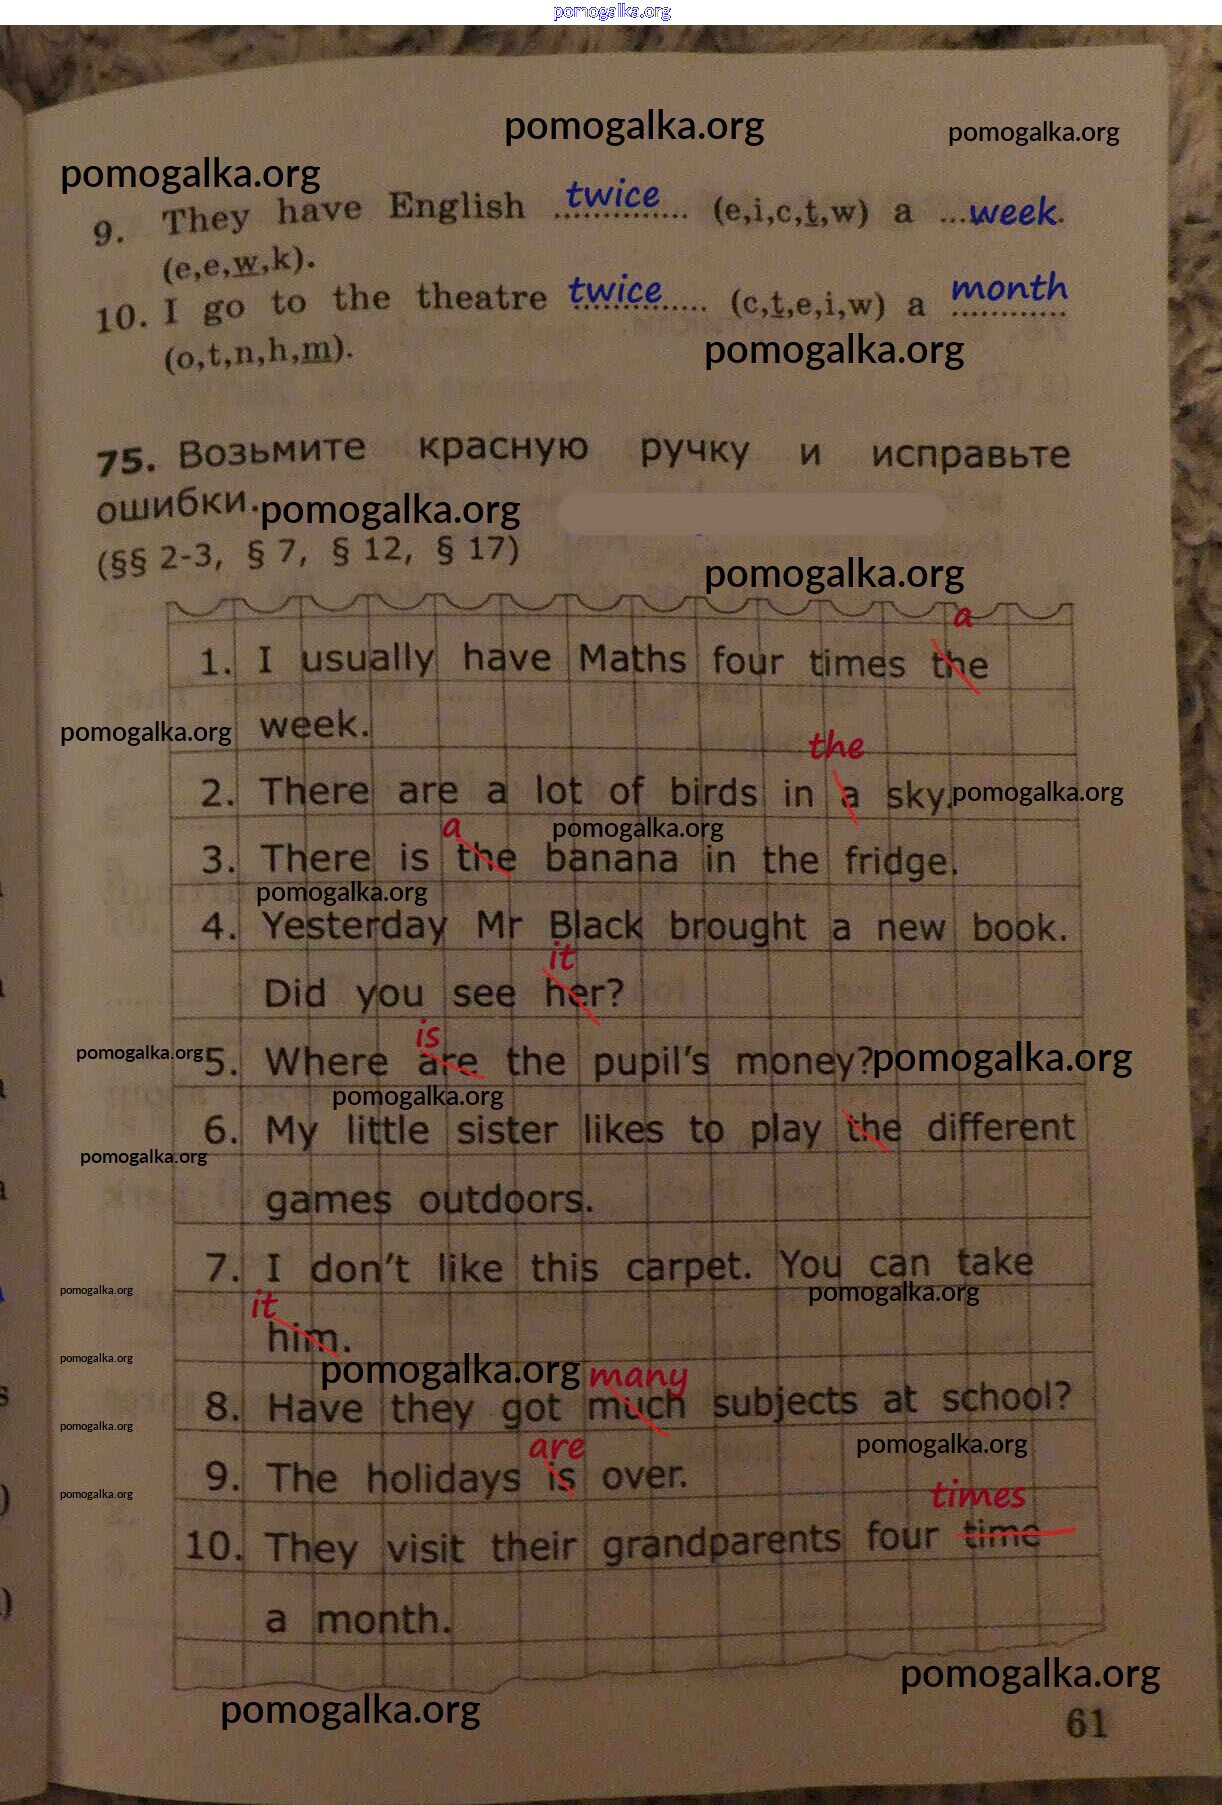 pomogalka.org
pomogalka.org
pomogalka.org
pomogalka.org
9. They have English twice (e,i,c,t,w) a ...week.
(e,e,w,k).
10. I go to the theatre twice (c,t,e,i,w) a month
(o,t,n,h,m).
pomogalka.org
75. Возьмите красную ручку и исправьте
ошибки. pomogalka.org
(§§ 2-3, § 7, § 12, § 17)
pomogalka.org
a
1. I usually have Maths four times the
week.
pomogalka.org
the
2. There are a lot of birds in a sky.
pomogalka.org
a
pomogalka.org
3. There is the banana in the fridge.
pomogalka.org
4. Yesterday Mr Black brought a new book.
it
Did you see her?
is
pomogalka.org
5. Where are the pupil's money?
pomogalka.org
pomogalka.org
6. My little sister likes to play the different
pomogalka.org
games outdoors.
7. I don't like this carpet. You can take
pomogalka.org
pomogalka.org
it
him.
pomogalka.org
pomogalka.org
many
8. Have they got much subjects at school?
pomogalka.org
pomogalka.org
are
9. The holidays is over.
pomogalka.org
times
10. They visit their grandparents four time
a month.
pomogalka.org
pomogalka.org
61